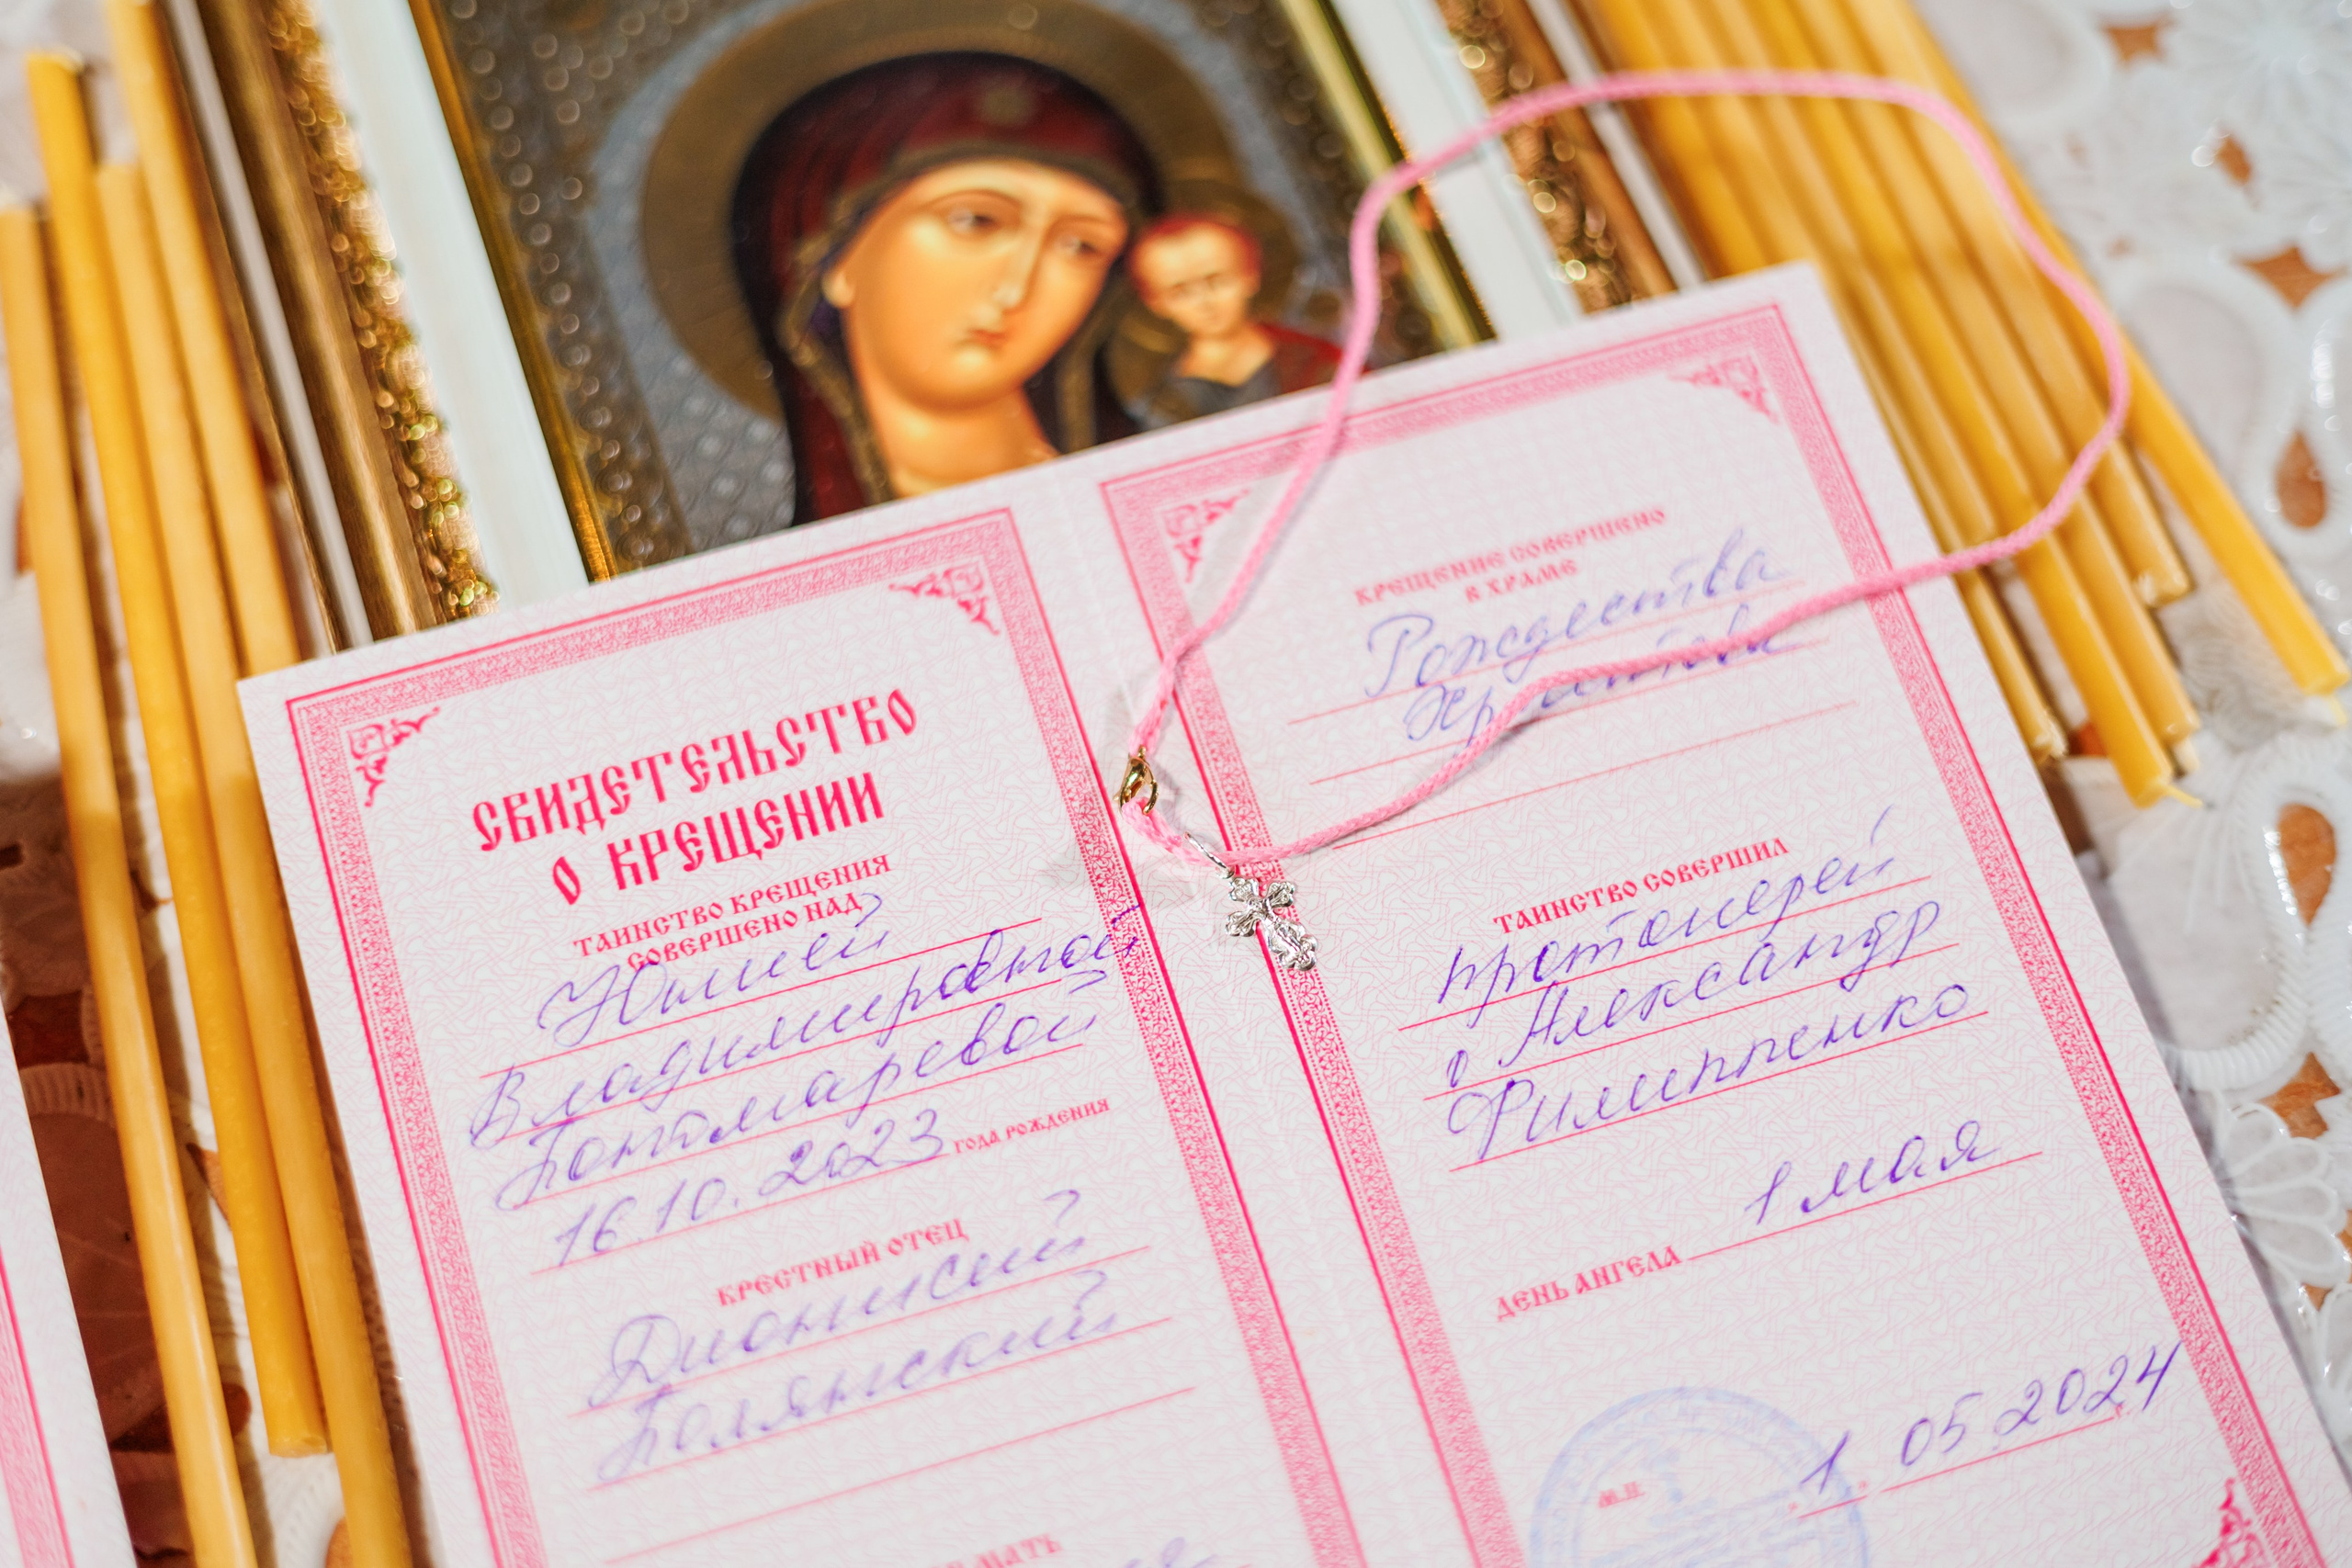 СВИДЕТЕЛЬСТВО
О КРЕЩЕНИИ
ТАИНСТВО КРЕЩЕНИЯ
СОВЕРШЕНО НАД
Юлией
Владимировной
Пономаревой
16.10.2023 ГОДА РОЖДЕНИЯ
КРЕСТНЫЙ ОТЕЦ
Дионисий
Полянский
МАТЬ
КРЕЩЕНИЕ СОВЕРШЕНО
В ХРАМЕ
Рождества
Христова
ТАИНСТВО СОВЕРШИЛ
протоиерей
о Александр
Филиппенко
ДЕНЬ АНГЕЛА 1 мая
М.П. "1" 05 2024 г.